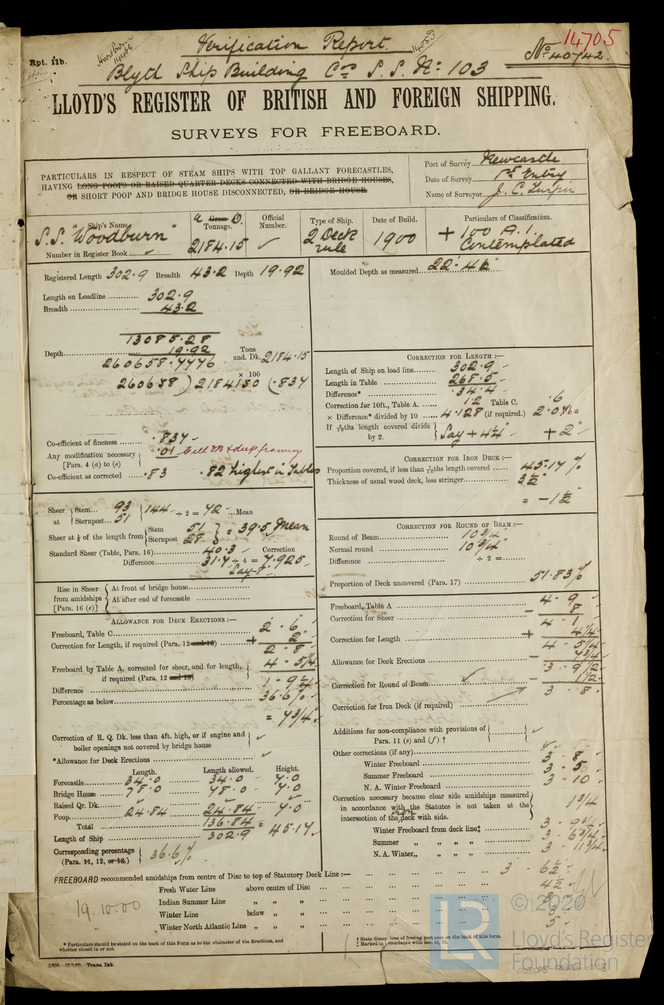 Rpt. 11b.
Verification Report.
14705
No 40742.
Blyth Ship Building Co S.S. No 103
LLOYD'S REGISTER OF BRITISH AND FOREIGN SHIPPING.
SURVEYS FOR FREEBOARD.
PARTICULARS IN RESPECT OF STEAM SHIPS WITH TOP GALLANT FORECASTLES,
HAVING LONG POOPS OR RAISED QUARTER DECKS CONNECTED WITH BRIDGE HOUSES,
OR SHORT POOP AND BRIDGE HOUSE DISCONNECTED, OR BRIDGE HOUSE.
Port of Survey Newcastle
Date of Survey 1st Entry
Name of Surveyor J. C.
Ship's Name
S.S. "Woodburn"
Number in Register Book
Tonnage.
2184.15
Official Number.
Type of Ship.
2 Deck rule
Date of Build.
1900
Particulars of Classification.
+ 100 A.1. Contemplated
Registered Length 302.9 Breadth 43.2 Depth 19.92
Length on Loadline 302.9
Breadth 43.2
13085.28
Depth 19.92
260658.7776
Tons und. Dk. 2184.15
× 100
260658 ) 2184150 ( .837
Co-efficient of fineness .837
Any modification necessary .01
[Para. 4 (a) to (e)]
Co-efficient as corrected .83 .82 highest in Tables
Sheer at Stem 93
Sternpost 51
144 ÷ 2 = 72 Mean
Sheer at 1/8 of the length from Stem 51
Sternpost 28
= 39.5 Mean
Standard Sheer (Table, Para. 16) 40.3 Correction
Difference 31.7 ÷ 4 = 7.925
Say 8
Rise in Sheer from amidships [Para. 16 (e)]
At front of bridge house
At after end of forecastle
ALLOWANCE FOR DECK ERECTIONS:—
Freeboard, Table C 2 . 6
Correction for Length, if required (Para. 12 and 13) + 2
2 . 8
Freeboard by Table A. corrected for sheer, and for length, if required (Para. 12 and 13) 4 - 5¼
Difference 1 - 9¼
Percentage as below 36.6%
= 7¾
Correction of R. Q. Dk. less than 4ft. high, or if engine and boiler openings not covered by bridge house
*Allowance for Deck Erections
Length. Length allowed. Height.
Forecastle 34.0 34.0 7.0
Bridge House 78.0 78.0 7.0
Raised Qr. Dk.
Poop 24.84 24.84 7.0
Total 136.84
Length of Ship 302.9 = 45.17
Corresponding percentage (Para. 11, 12, or 13) 36.6%
Moulded Depth as measured 22.4½
CORRECTION FOR LENGTH:—
Length of Ship on load line 302.9
Length in Table 268.5
Difference* 34.4
Correction for 10ft., Table A. 1.2 Table C. .6
× Difference* divided by 10 4.128 (if required.) 2.0
If 6/10ths length covered divide by 2. Say + 4¼ + 2
CORRECTION FOR IRON DECK:—
Proportion covered, if less than 7/10ths length covered 45.17%
Thickness of usual wood deck, less stringer 3½
= -1½
CORRECTION FOR ROUND OF BEAM:—
Round of Beam 10¾
Normal round 10¾
Difference ÷ 2 =
Proportion of Deck uncovered (Para. 17) 51.83%
Freeboard, Table A 4 - 9
Correction for Sheer - 8
4 - 1
Correction for Length + 4¼
4 - 5¼
Allowance for Deck Erections - 7¾
3 - 9½
Correction for Round of Beam - 1½
3 - 8
Correction for Iron Deck (if required)
Additions for non-compliance with provisions of Para. 11 (e) and (f) †
Other corrections (if any)
Winter Freeboard 3 - 8
Summer Freeboard 3 - 5
N. A. Winter Freeboard 3 - 10
Correction necessary because clear side amidships measured in accordance with the Statutes is not taken at the intersection of the deck with side. 1¾
Winter Freeboard from deck line‡ 3 - 9¾
Summer „ „ „ „ 3 - 6¾
N. A. Winter „ „ „ „ 3 - 11¾
FREEBOARD recommended amidships from centre of Disc to top of Statutory Deck Line:— 3 6½
Fresh Water Line above centre of Disc 4½
Indian Summer Line „ „
Winter Line below „ „
Winter North Atlantic Line „ „ 5
19.10.00
* Particulars should be stated on the back of this Form as to the character of the Erections, and whether closed in or not.
© 2020
Lloyd's Register
Foundation
LR